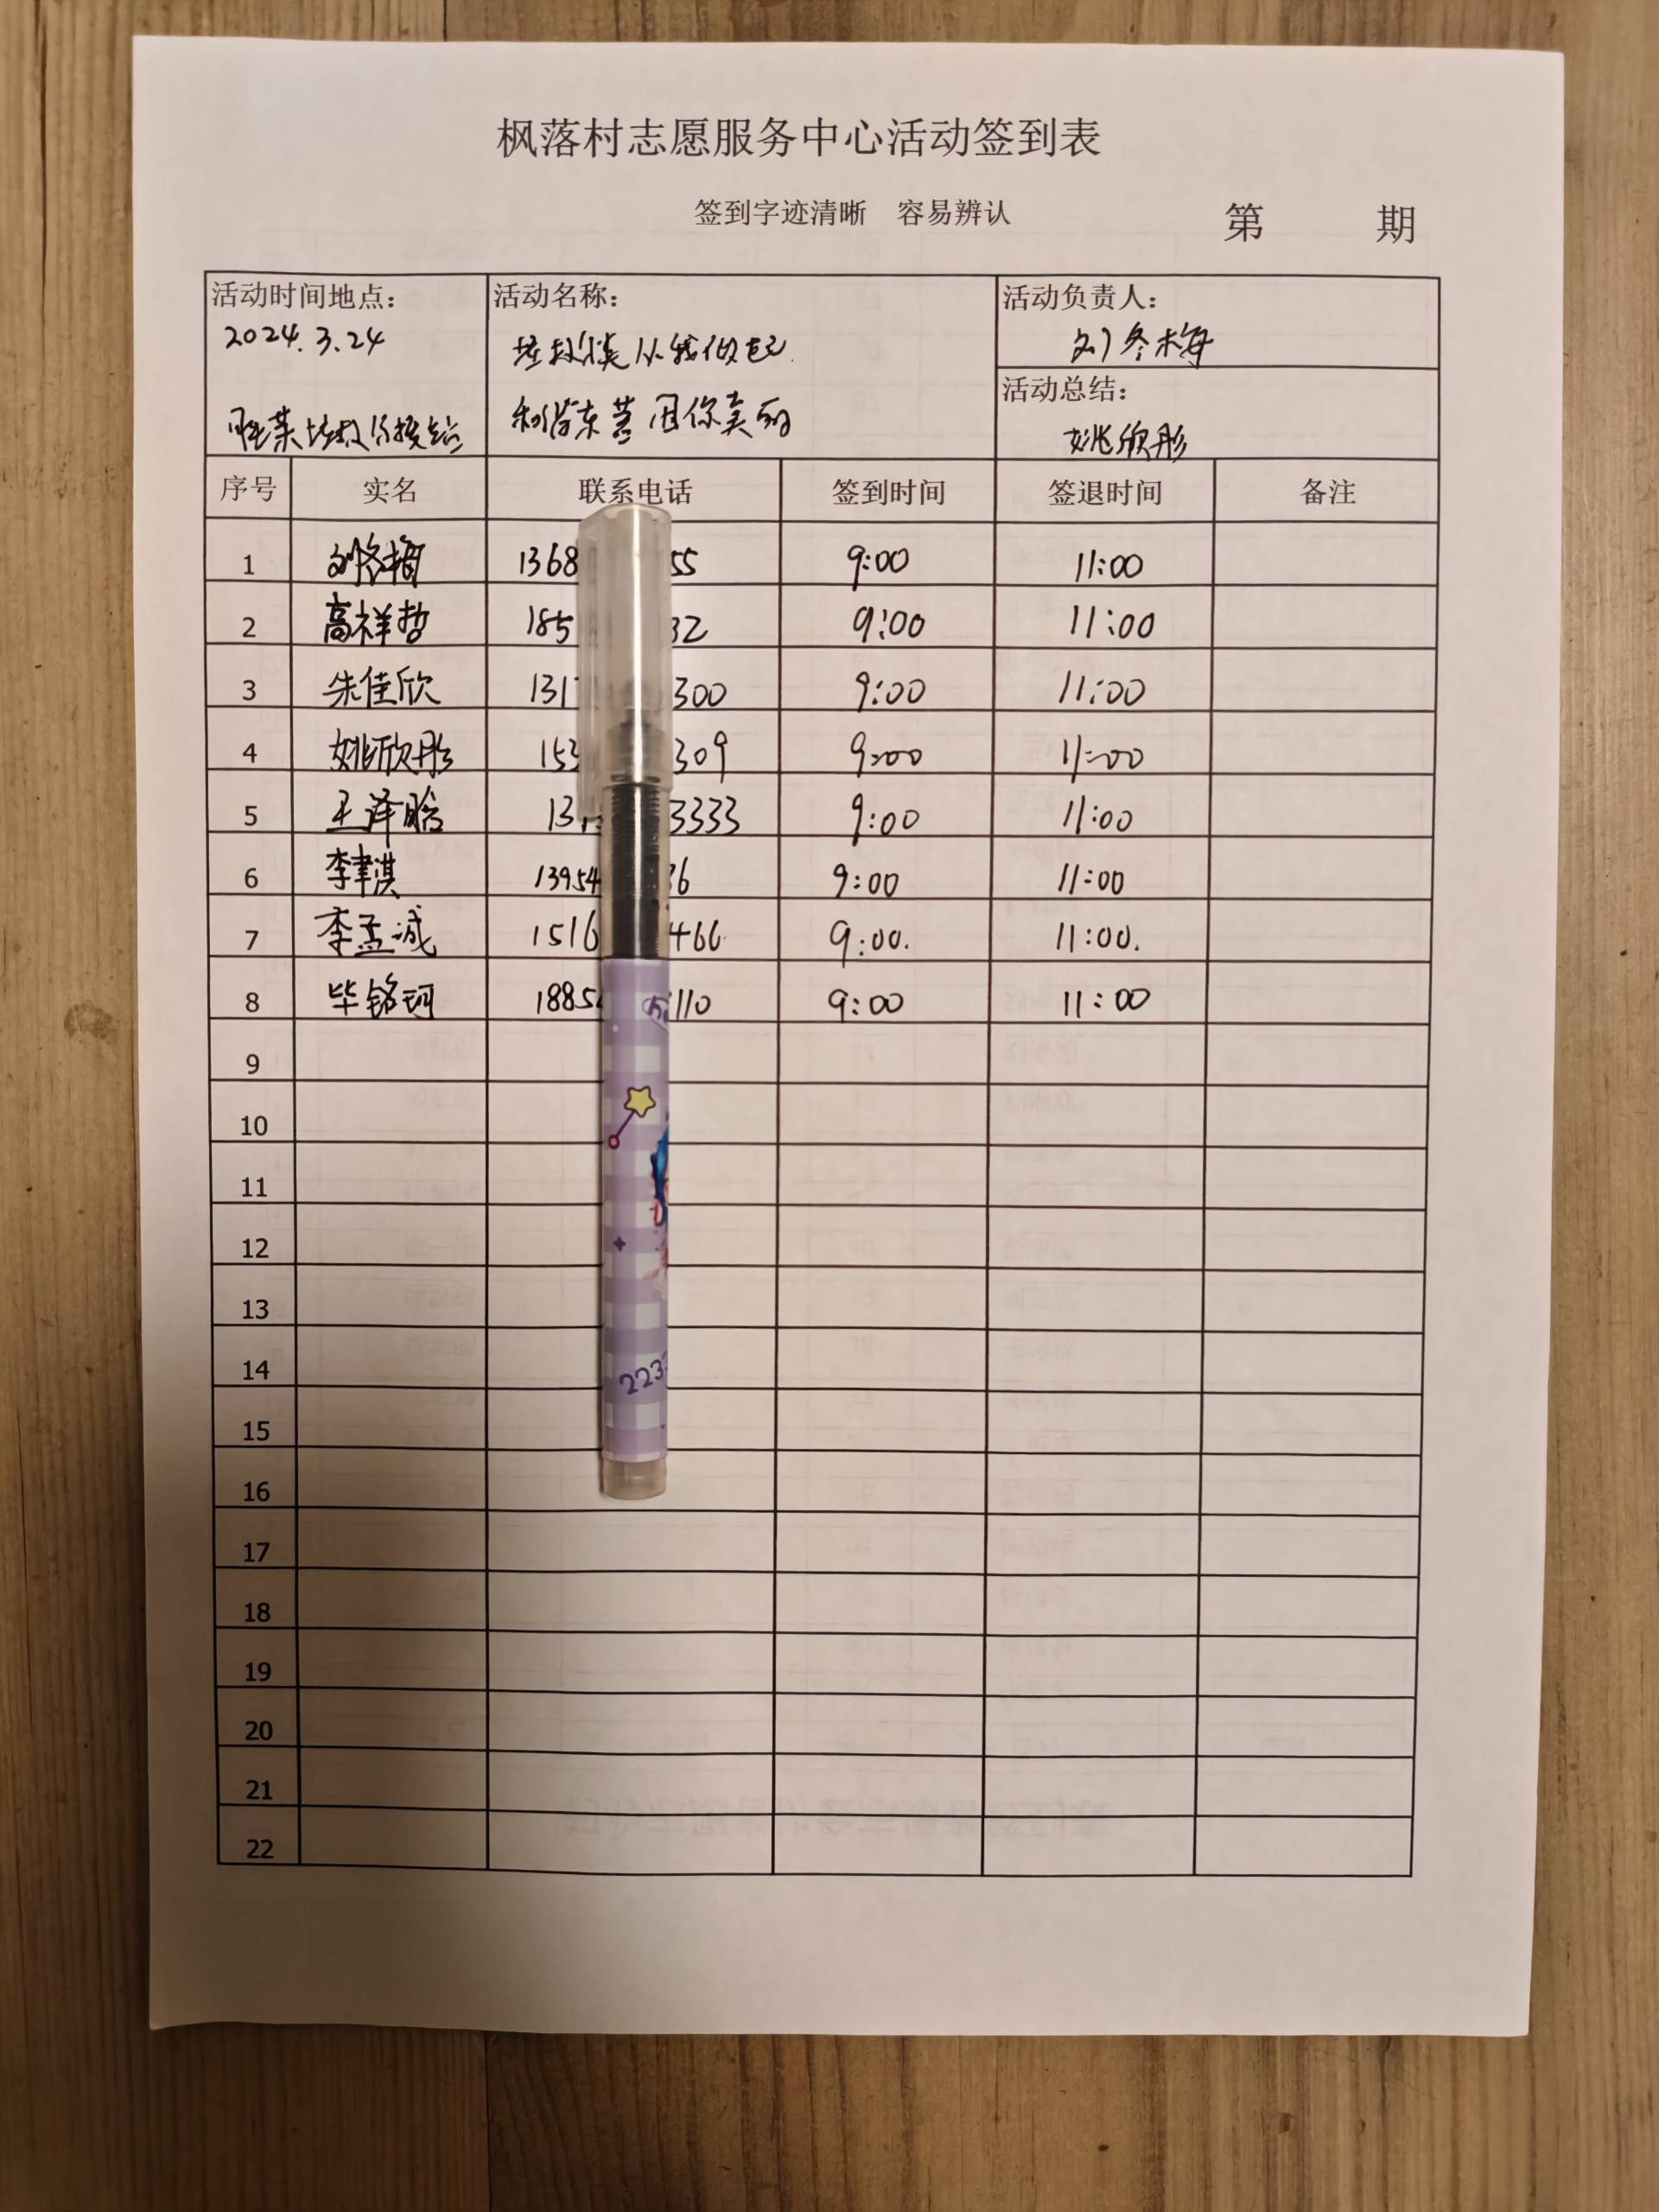 枫落村志愿服务中心活动签到表
签到字迹清晰 容易辨认 第 期
活动时间地点: 活动名称: 活动负责人:
2024.3.24 垃圾分类 从我做起 刘冬梅
活动总结:
垃圾分 因你美丽 姚欣彤
序号 实名 联系电话 签到时间 签退时间 备注
1 刘冬梅 1368 55 9:00 11:00
2 高祥哲 185 32 9:00 11:00
3 朱佳欣 131 300 9:00 11:00
4 姚欣彤 153 309 9:00 11:00
5 王泽晗 13 3333 9:00 11:00
6 李聿淇 13954 36 9:00 11:00
7 李孟诚 1516 466 9:00. 11:00.
8 毕铭珂 1885 110 9:00 11:00
9
10
11
12
13
14
2233
15
16
17
18
19
20
21
22